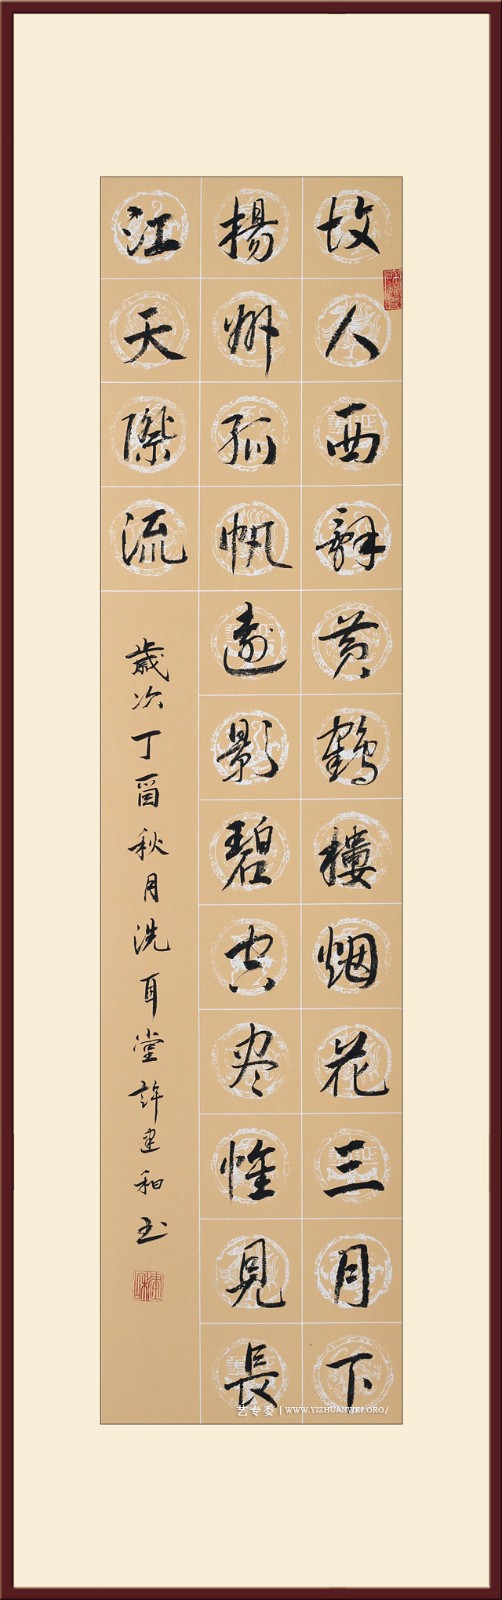 故人西辭黄鶴樓烟花三月下
揚州孤帆遠影碧空尽惟見長
江天際流
歲次丁酉秋月洗耳堂許建和书
艺专委 | WWW.YIZHUANWEI.ORG/